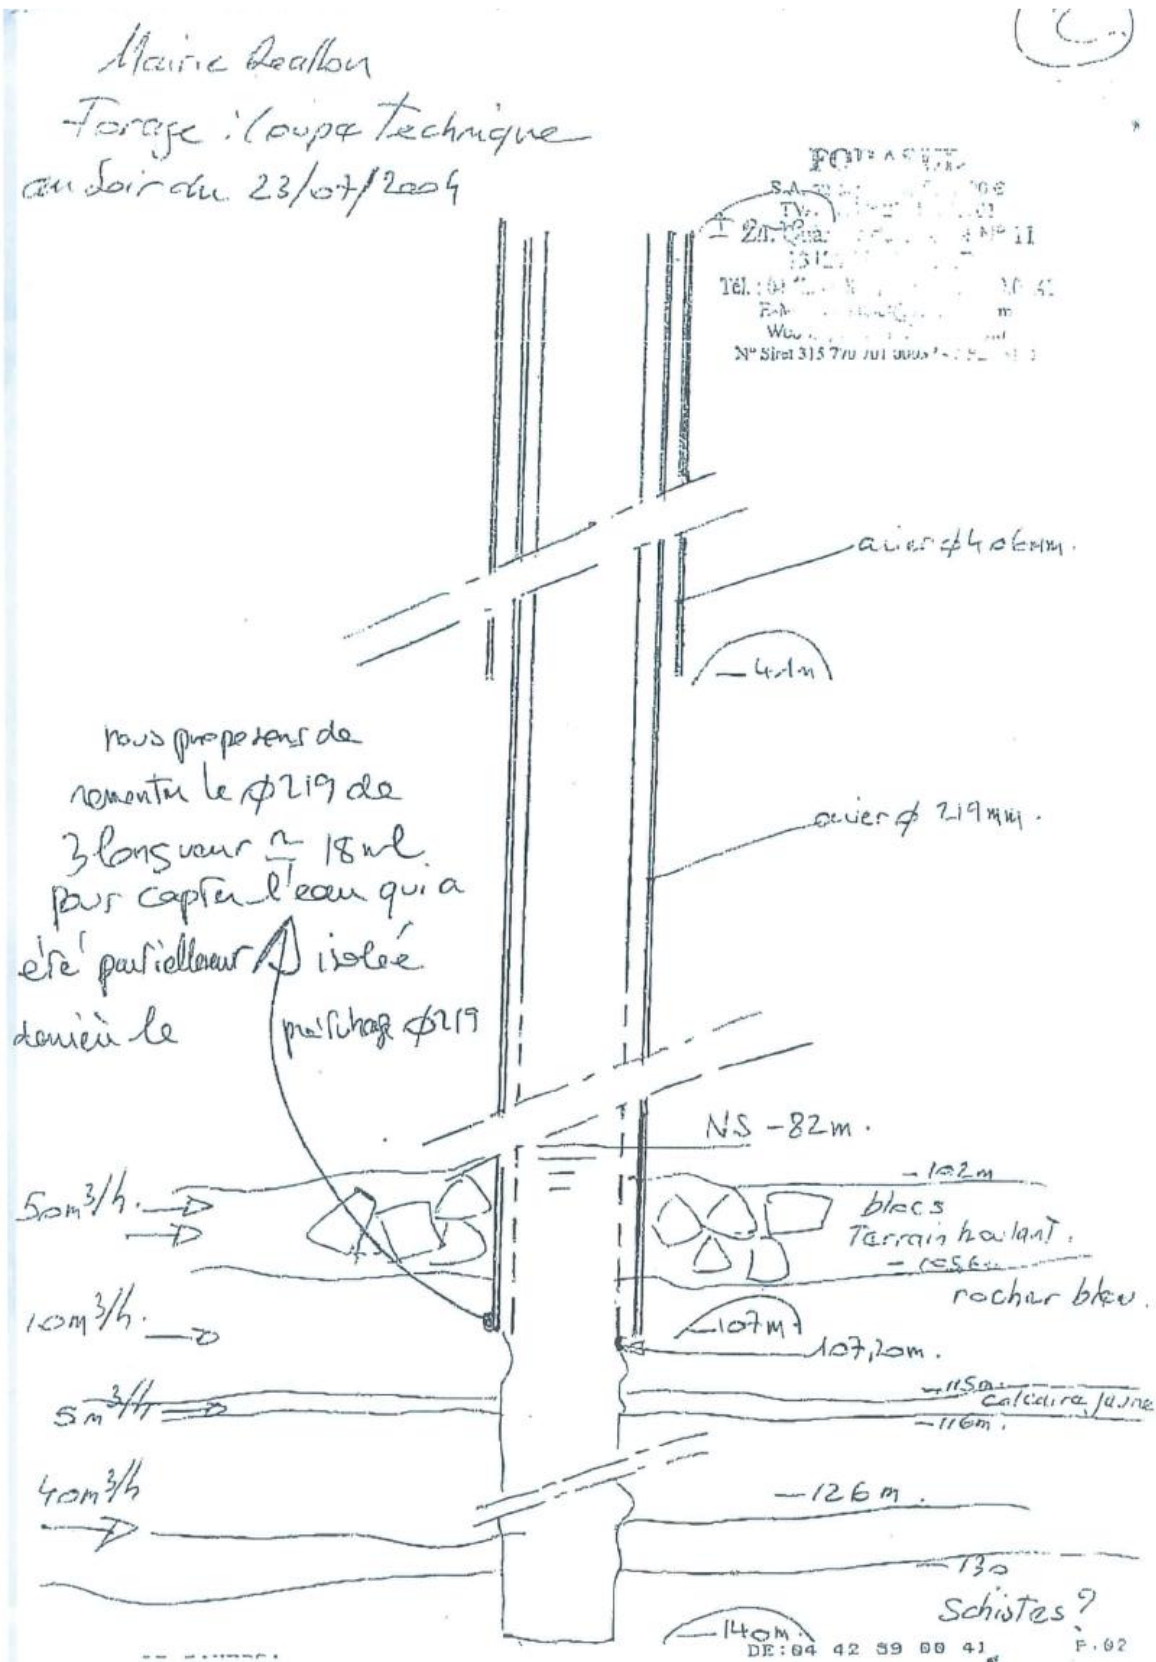 Mairie Reallon
Forage : Coupe Technique
au soir du 23/07/2004
S.A.
N° 11
Tél. :
N° Siret 315 770 701
acier ø 406mm.
- 41m
nous proposons de
remonter le ø219 de
3 longueur ≃ 18 ml.
pour capter l'eau qui a
été partiellement isolée
derrière le ø219
acier ø 219mm.
NS -82m.
50m³/h.
-102m
blocs
Terrain boulant.
rocher bleu.
10m³/h.
-107m
107,20m.
5m³/h
-115m.
calcaire jaune
-116m.
40m³/h
-126m.
-130
Schistes ?
-140m.
DE:04 42 59 00 41
P.02